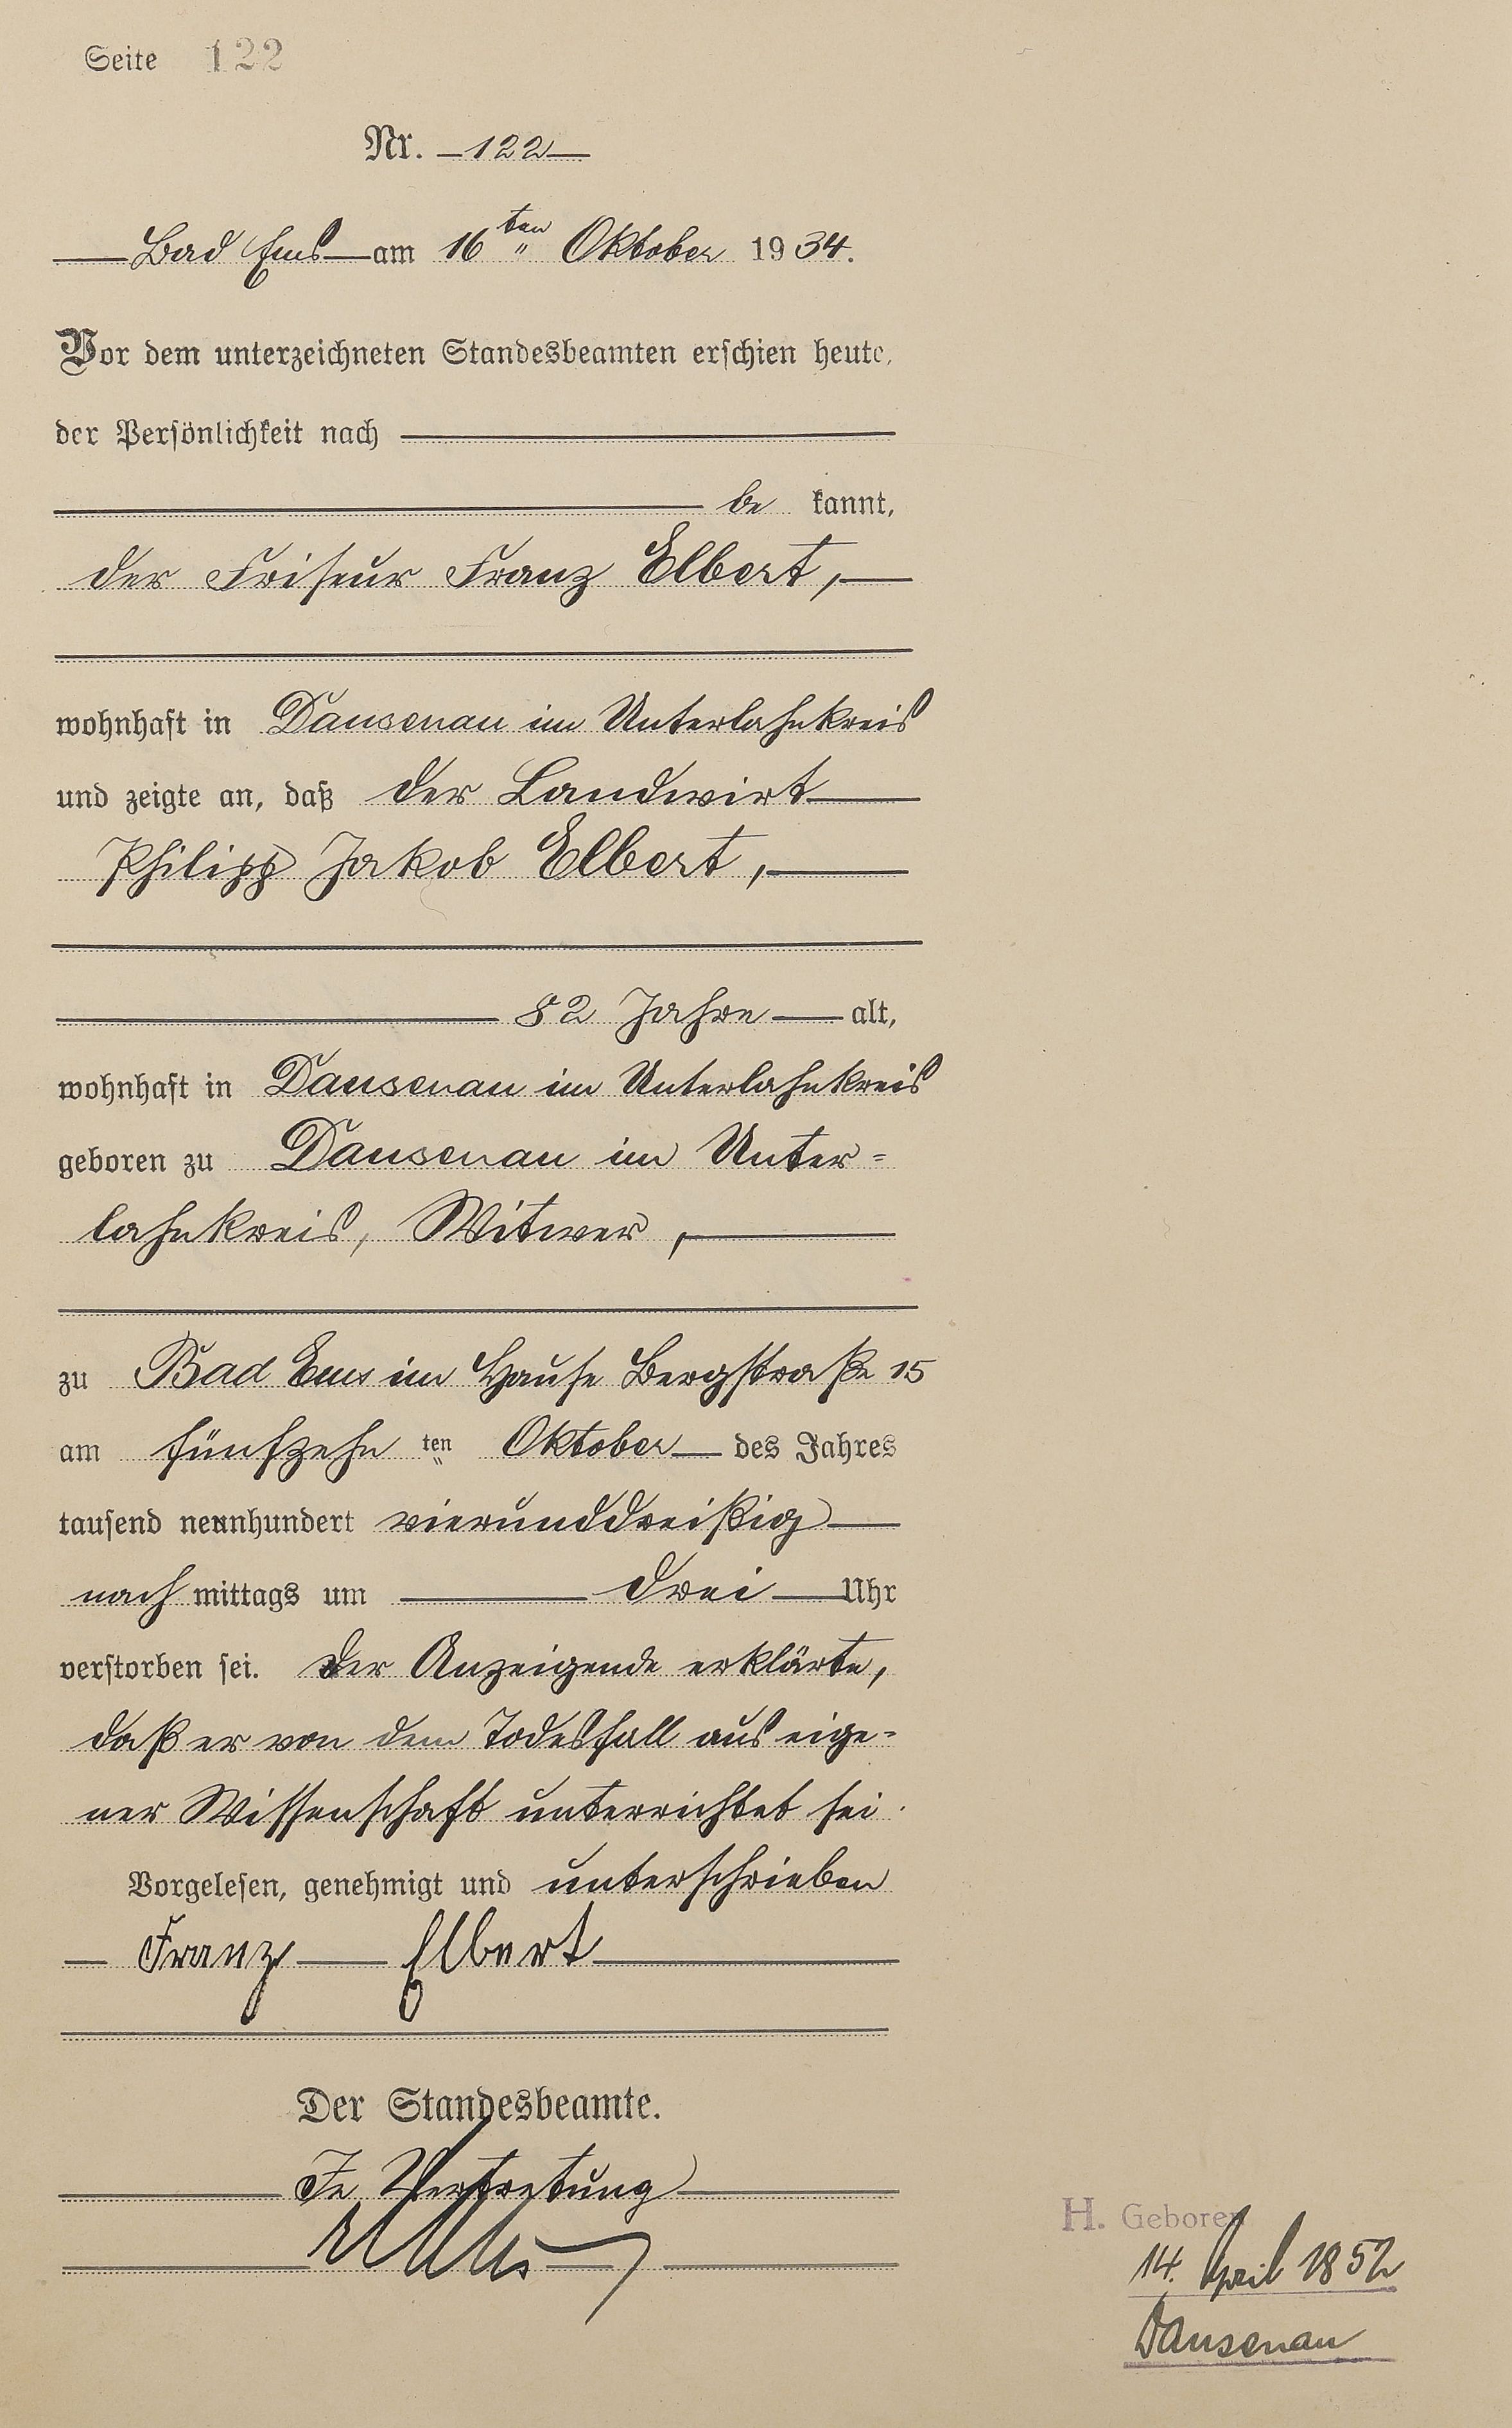 Seite 122
Nr. 122
Bad Ems am 16ten Oktober 1934.
Vor dem unterzeichneten Standesbeamten erschien heute,
der Persönlichkeit nach
be kannt,
der Friseur Franz Elbert,
wohnhaft in Dausenau im Unterlahnkreis
und zeigte an, daß der Landwirt
Philipp Jakob Elbert,
82 Jahre alt,
wohnhaft in Dausenau im Unterlahnkreis
geboren zu Dausenau im Unter=
lahnkreis, Witwer,
zu Bad Ems im Hause Bergstraße 15
am fünfzehn ten Oktober des Jahres
tausend neunhundert vierunddreißig
nach mittags um drei Uhr
verstorben sei. Der Anzeigende erklärte,
daß er von dem Todesfall aus eige=
ner Wissenschaft unterrichtet sei.
Vorgelesen, genehmigt und unterschrieben
Franz Elbert
Der Standesbeamte.
In Vertretung
H. Geboren
14. April 1852
Dausenau